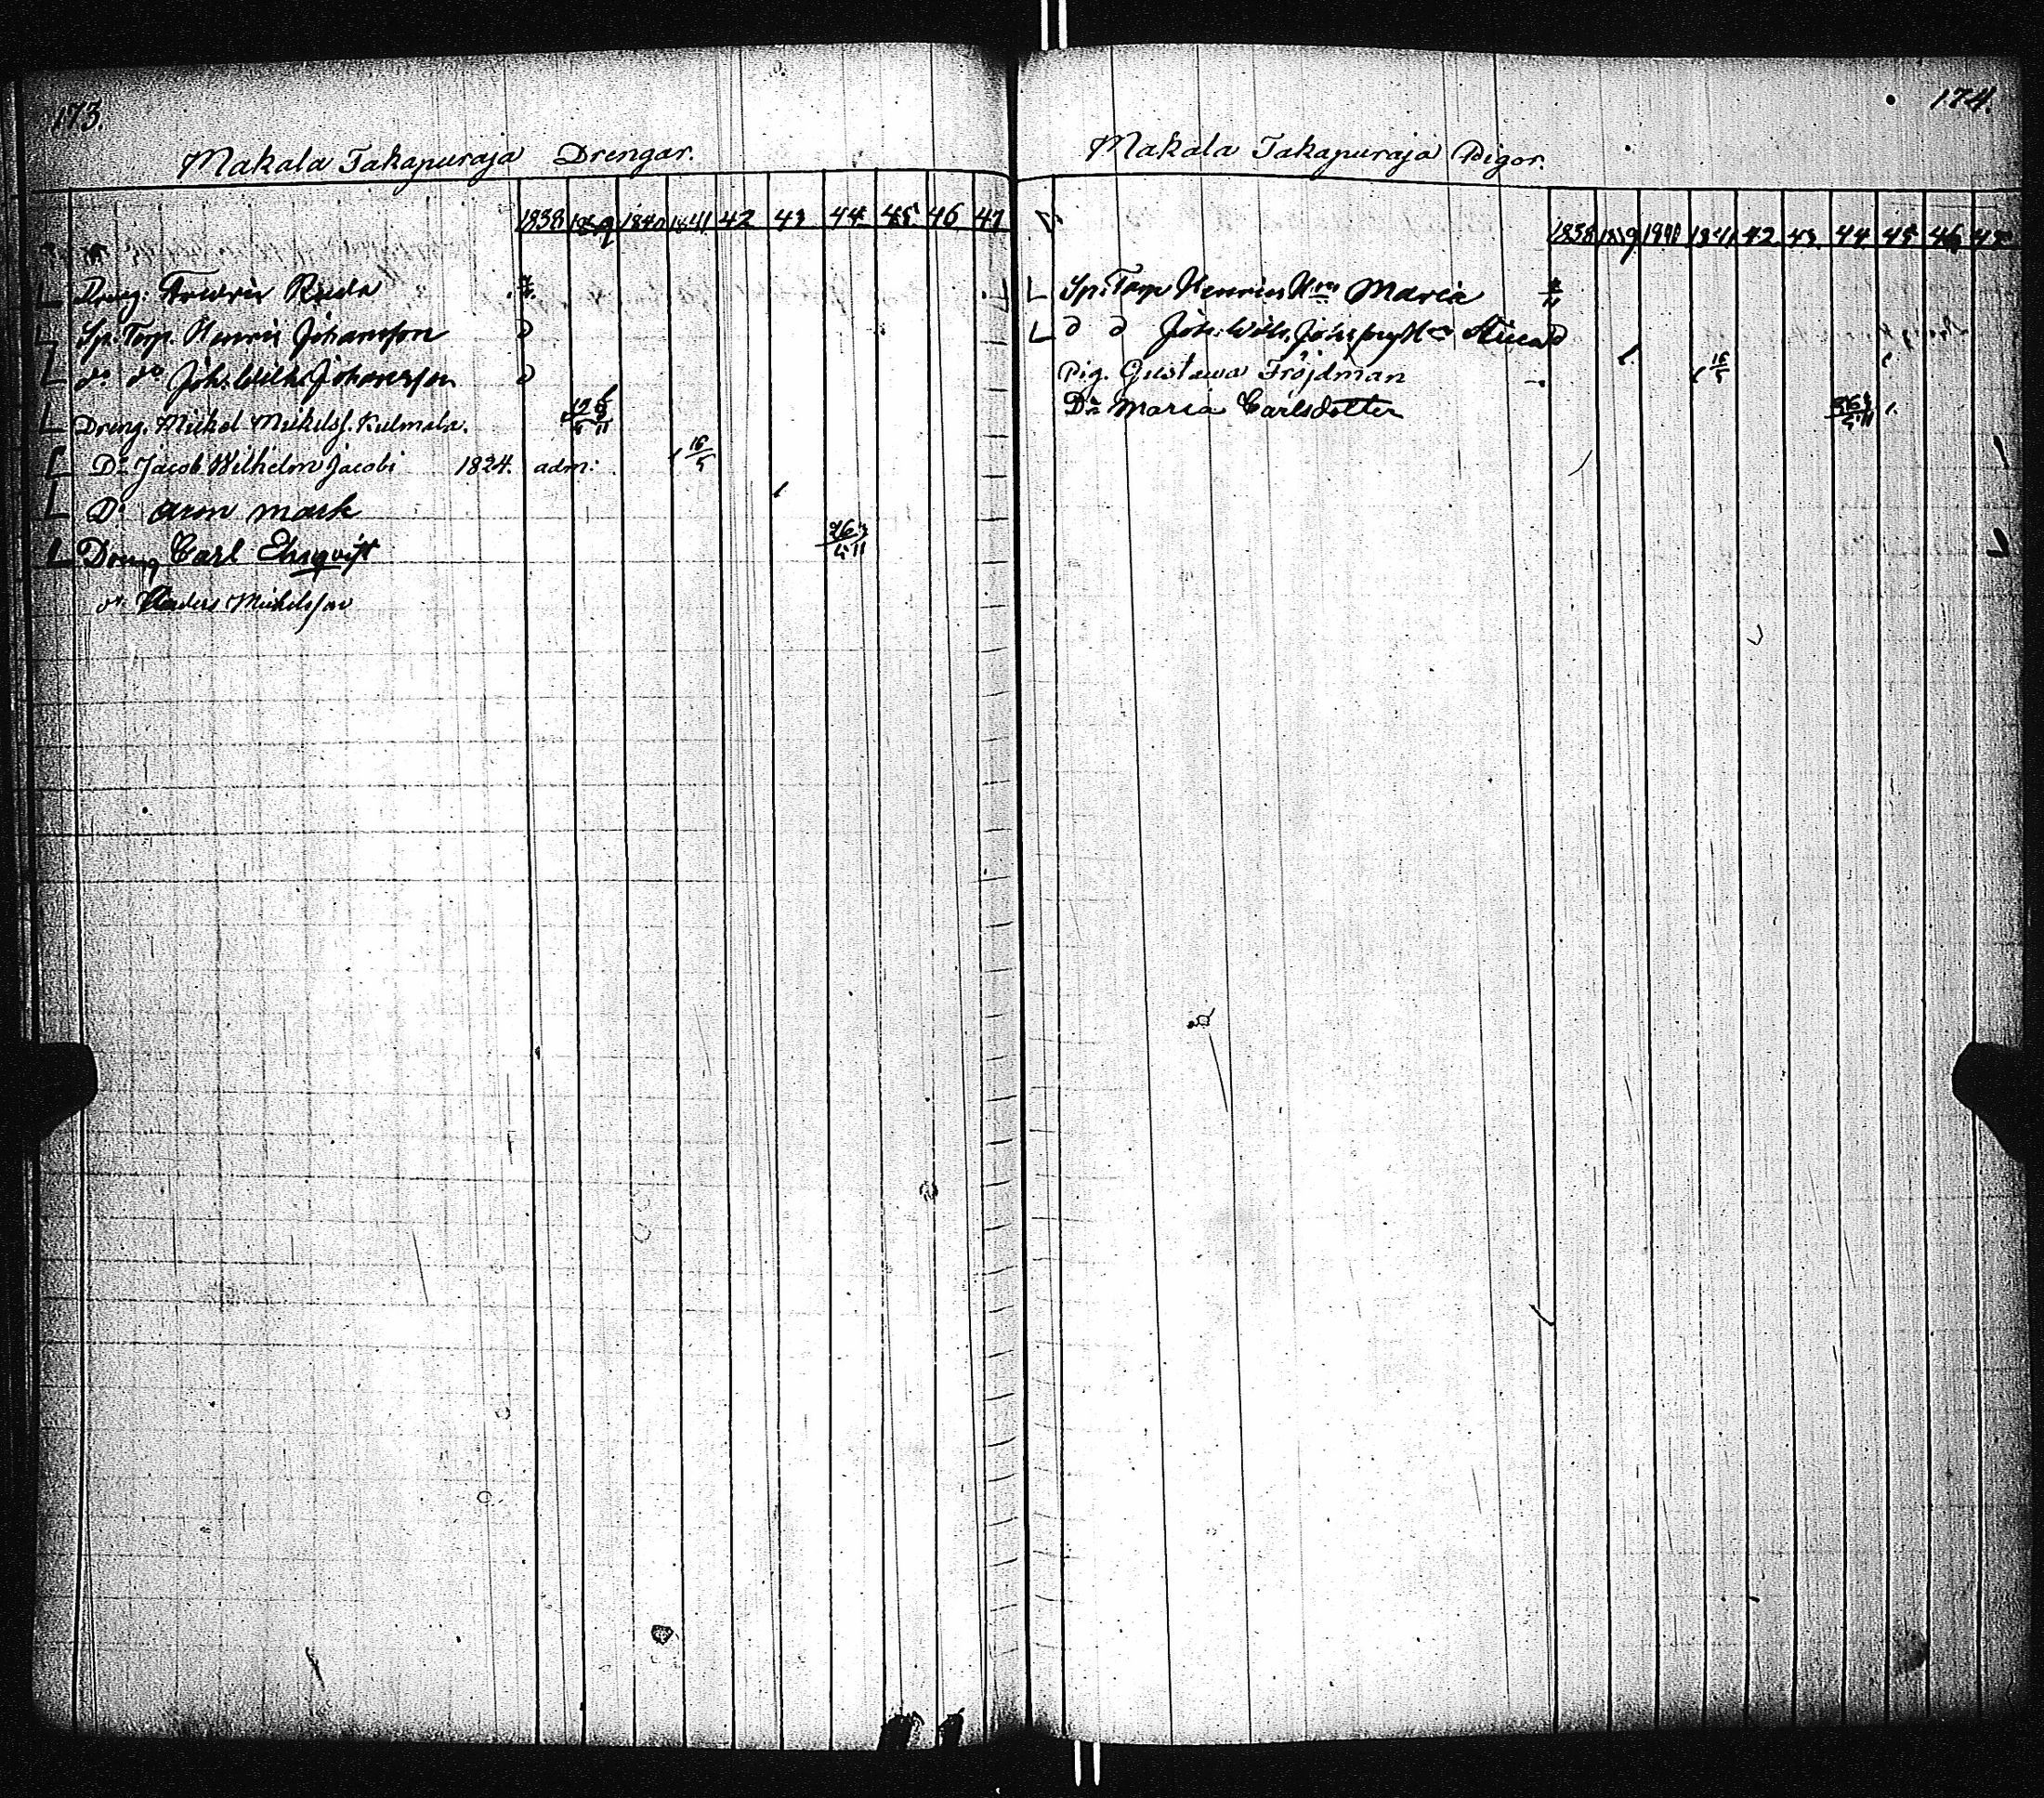 173.
Makala Takapuraja Drengar.
1838 1839 1840 1841 42 43 44 45 46 47
Dreng. Fredric
Sp. Torp. Henric Johansson
do do Joh. Wilh. Johansson
Dreng. Mickel Mickelss. Kulmala.
Do Jacob Wilhelm Jacobi 1824. adm: 16/5
Do Aron Mark
Dreng Carl
do Anders Mickelsson
174.
Makala Takapuraja Pigor.
1838 1839 1840 1841 42 43 44 45 46 47
Sp. Torp Henrics Hru Maria
d d Joh. Wilh. Stina d
Pig. Gustawa Fröjdman 16/5
Do Maria Carlsdotter